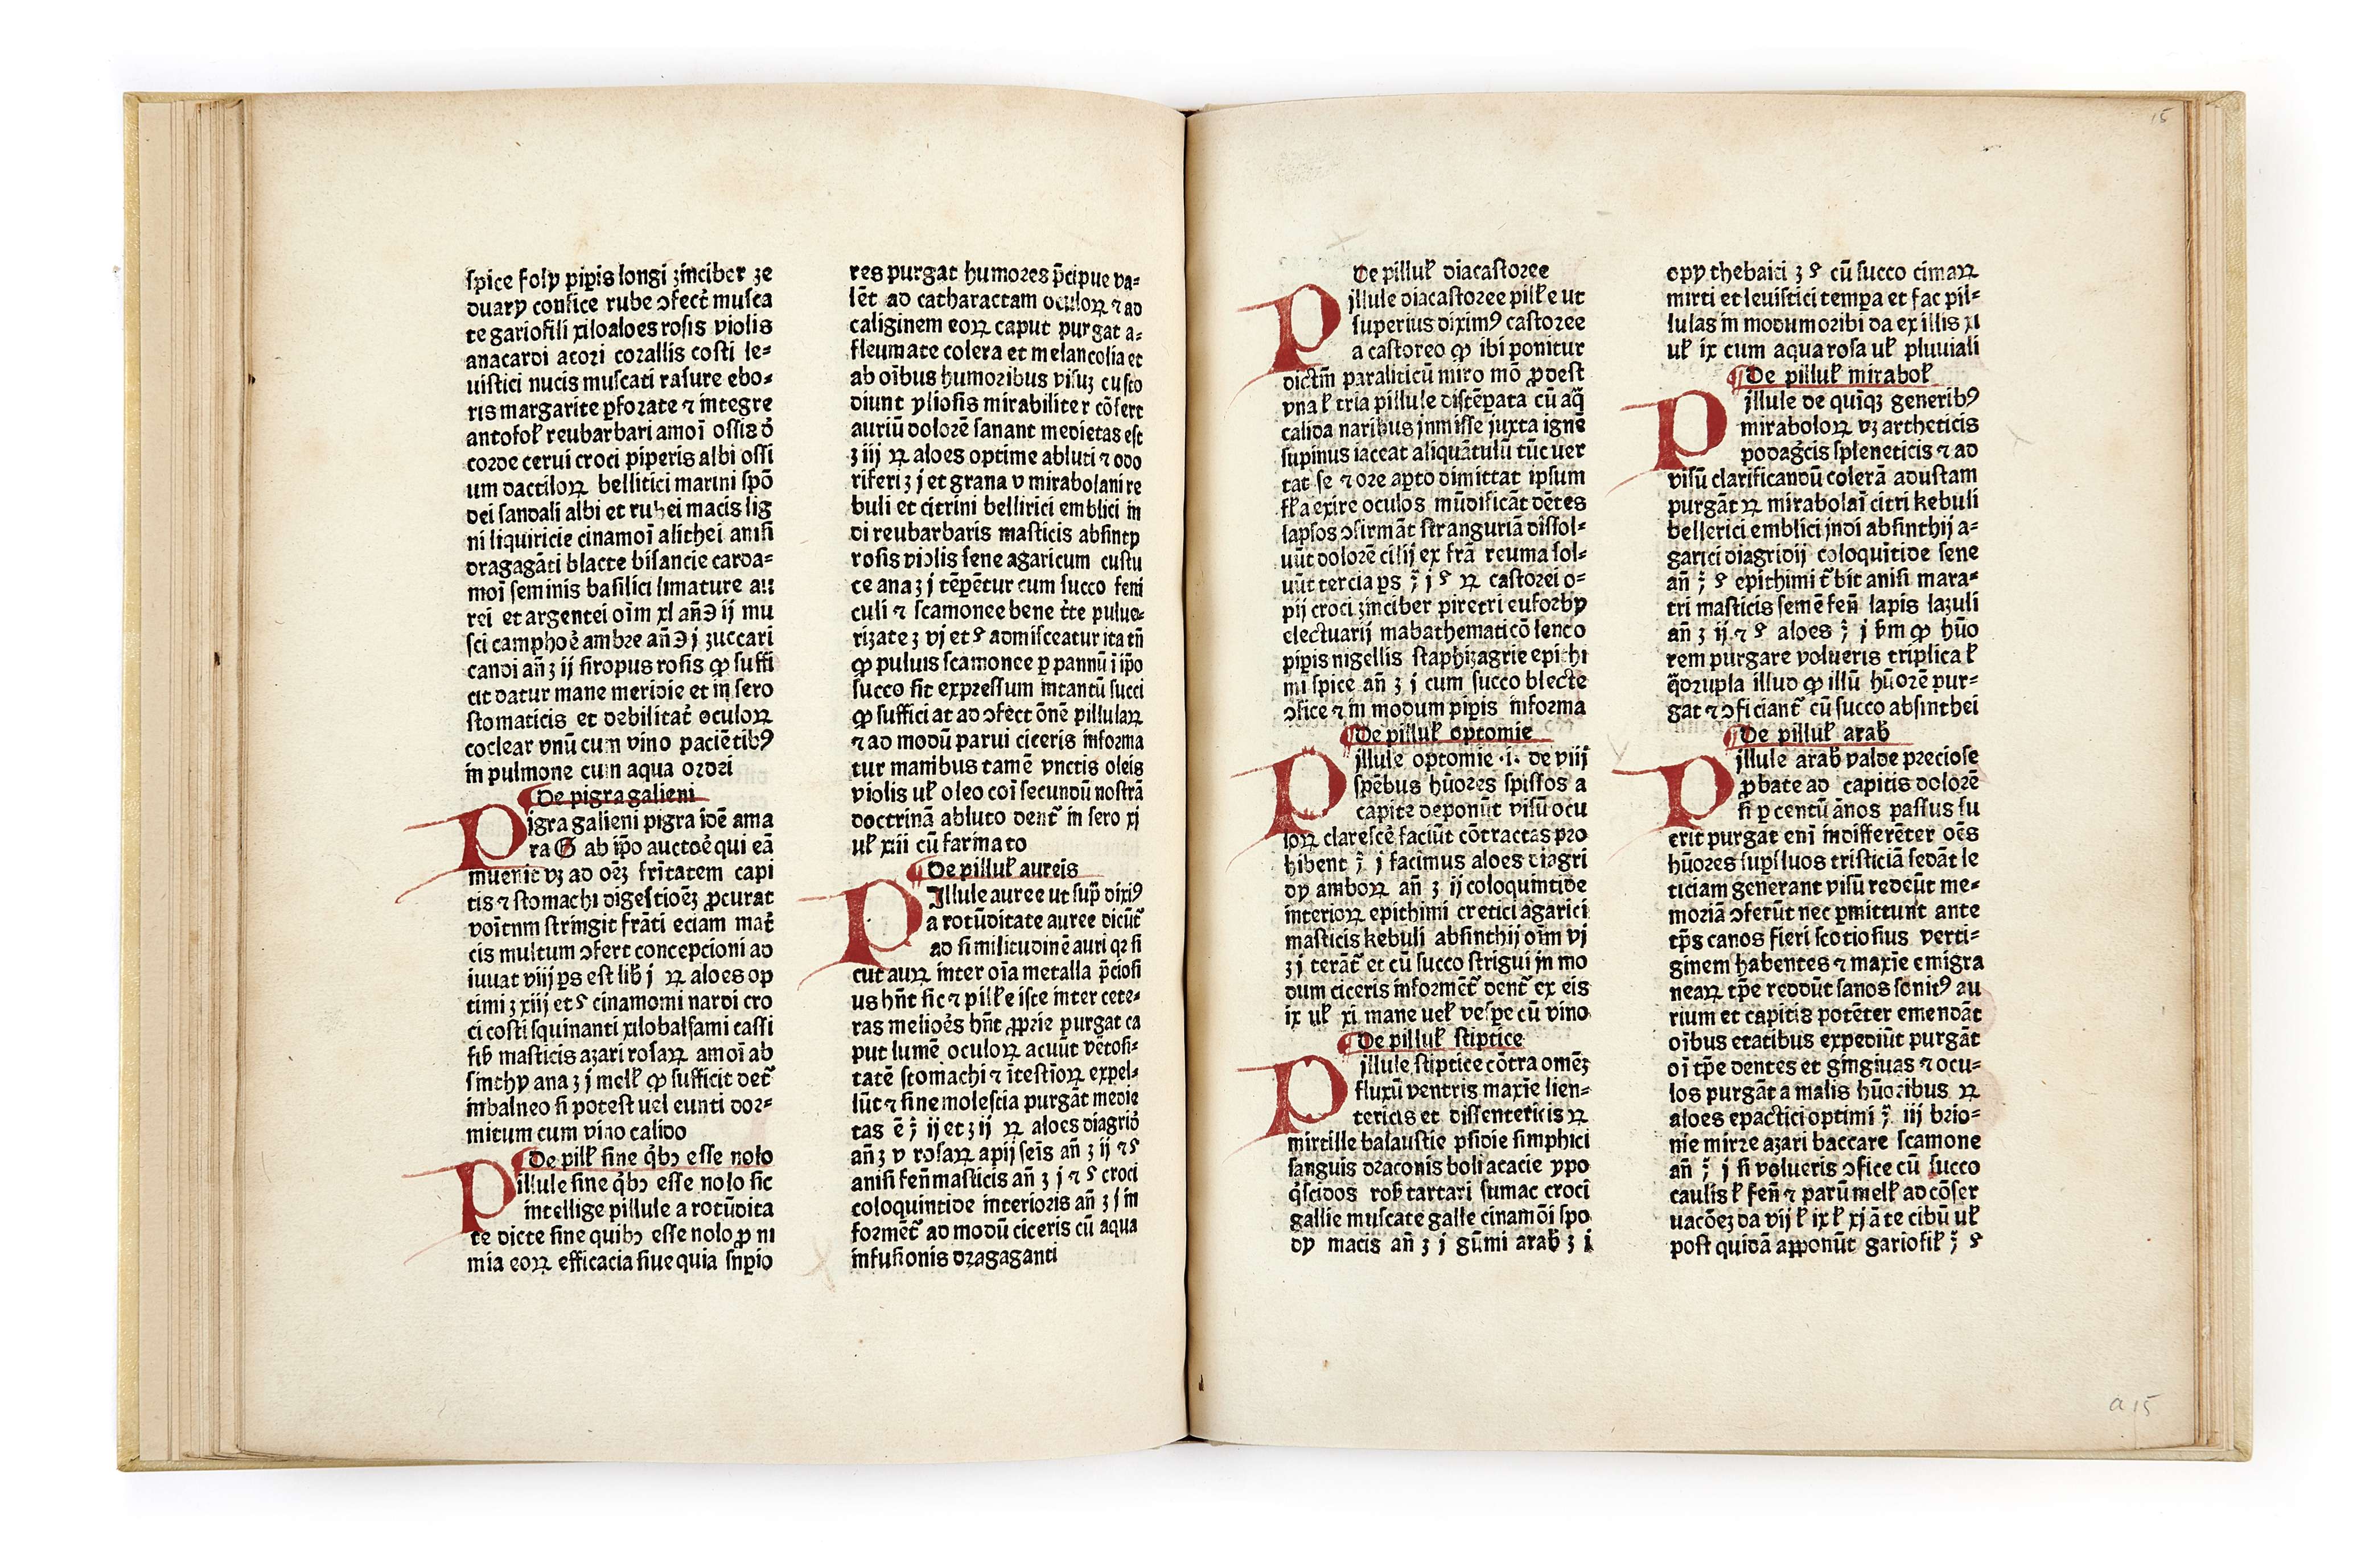 15
ſpice foly pip̲is longi ʒinciber ʒe
duary confice rube ↄfect̉ muſca
te gariofili xiloaloes roſis violis
anacardi acori corallis coſti le⸗
uiſtici nucis muſcati raſure ebo⸗
ris margarite ꝑforate ⁊ integre
antofoł reubarbari amoī oſſis ð
corde cerui croci piperis albi oſſi
um dactiloꝝ bellitici marini ſpō
dei ſandali albi et rubei macis lig
ni liquiricie cinamoī alithei aniſi
dragagāti blacte biſancie carda⸗
moī ſeminis baſilici limature au
rei et argentei oīm xl an̄ ℈ ij mu
ſci camphoẻ ambre an̄ ℈ j zuccari
candi an̄ ʒ ij ſiropus roſis ꝙ ſuffi
cit datur mane meridie et in ſero
ſtomaticis et debilitat̉ oculoꝝ
coclear vnū cum vino paciētibꝰ
in pulmone cum aqua ordei
¶De pigra galieni
Pigra galieni pigra idē ama
ra G ab ip̄o auctoẻ qui eā
inuenit vʒ ad oēʒ fr̄itatem capi
tis ⁊ ſtomachi digeſtioēʒ ꝓcurat
voītnm ſtringit frāti eciam mat̉
cis multum ↄfert concepcioni ad
iuuat viij ꝑs eſt lib̄ j ꝝ aloes op
timi ʒ xiij et ẞ cinamomi nardi cro
ci coſti ſquinanti xilobalſami caſſi
fib̄ maſticis azari roſaꝝ amoī ab
ſinthy ana ʒ j melł ꝙ ſufficit det̃
in balneo ſi poteſt uel eunti dor⸗
mitum cum vino calido
¶De pilł ſine q̊bↄ eſſe nolo
Pillule ſine q̊bↄ eſſe nolo ſic
intellige pillule a rotūdita
te dicte ſine quibↄ eſſe nolo ꝓ ni
mia eoꝝ efficacia ſiue quia ſup̲io
res purgat humores p̄cipue va⸗
lēt ad catharactam oculoꝝ ⁊ ad
caliginem eoꝝ caput purgat a⸗
fleumate colera et melancolia et
ab oībus humoribus viſuʒ cuſto
diunt ylioſis mirabiliter cōfert
auriū dolorē ſanant medietas eſt
ʒ iij ꝝ aloes optime abluti ⁊ odo
riferi ʒ j et grana v mirabolani re
buli et citrini bellirici emblici in
di reubarbaris maſticis abſinty
roſis violis ſene agaricum cuſtu
ce ana ʒ j tēpētur cum ſucco feni
culi ⁊ ſcamonee bene t̄te pulue⸗
rizate ʒ vj et ẞ admiſceatur ita tn̄
ꝙ puluis ſcamonee ꝑ pannū ī ip̄o
ſucco ſit expreſſum intantū ſucci
ꝙ ſufficiat ad ↄfect ōnē pillulaꝝ
⁊ ad modū parui ciceris informa
tur manibus tamē vnctis oleis
violis uł oleo coī ſecundū noſtrā
doctrinā abluto dent̃ in ſero xj
uł xiii cū farmato
¶De pilluł aureis
PJllule auree ut ſup̄ dixiꝰ
a rotūditate auree dicūt̃
ad ſimilitudinē auri qꝛ ſi
cut auꝝ inter oīa metalla p̄cioſi
us hn̄t ſic ⁊ pilłe iſte inter cete⸗
ras melioẻs hn̄t ꝓprie purgat ca
put lumē oculoꝝ acuūt vētoſi⸗
tatē ſtomachi ⁊ īteſtīoꝝ expel⸗
lūt ⁊ ſine moleſtia purgāt medie
tas ē ℥ ij et ʒ ij ꝝ aloes diagrid̉
an̄ ʒ v roſaꝝ apij ſeīs an̄ ʒ ij ⁊ ẞ
aniſi fen̄ maſticis an̄ ʒ j ⁊ ẞ croci
coloquintide interioris an̄ ʒ j in
formēt̃ ad modū ciceris cū aqua
infuſionis dragaganti
De pilluł diacaſtoree
Pillule diacaſtoree pilłe ut
ſuperius diximꝰ caſtoree
a caſtoreo ꝙ ibi ponitur
dictīn paraliticū miro mō ꝓdeſt
vna ł tria pillule diſtēꝑata cū aq̄
calida naribus jnmiſſe juxta igne
ſupinus iaceat aliquātulū tūc uer
tat ſe ⁊ ore aꝑto dimittat ipſum
fł a exire oculos mūdificāt dētes
lapſos ↄfirmāt ſtranguriā diſſol⸗
uūt dolorē cilij ex frā reuma ſol⸗
uūt tercia ꝑs ℥ j ẞ ꝝ caſtorei o⸗
pij croci ʒinciber piretri euforby
electuarij mabathematicō lenco
pip̲is nigellis ſtaphizagrie epithi
mi ſpice an̄ ʒ j cum ſucco blecte
ↄfice ⁊ in modum pip̲is informa
¶De pilluł optomie
Pillule optomie ·i· de viij
ſpēbus hūores ſpiſſos a
capite deponūt viſū ocu
loꝝ clareſcẻ faciūt cōtractas pro
hibent ℥ j facimus aloes diagri
dy amboꝝ an̄ ʒ ij coloquintide
interioꝝ epithimi cretici agarici
maſticis kebuli abſinthij oīm vj
ʒ j terāt̃ et cū ſucco ſtrigui jn mo
dum ciceris informēt̃ dent̃ ex eis
ix uł xi mane uel veſꝑe cū vino
¶De pilluł ſtiptice
Pillule ſtiptice cōtra omēʒ
fluxū ventris maxīe lien⸗
tericis et diſſentericis ꝝ
mirtille balauſtie pſidie ſimphici
ſanguis draconis boli acacie ypo
q̊ſcidos rob̄ tartari ſumac croci
gallie muſcate galle cinamōi ſpo
dy macis an̄ ʒ j gūmi arab̄ ʒ i
opy thebaici ʒ ẞ cū ſucco cimaꝝ
mirti et leuiſtici temꝑa et fac pil⸗
lulas in modum oribi da ex illis xl
uł ix cum aqua roſa uł pluuiali
¶De pilluł miraboł
Pillule de quīqʒ generibꝰ
miraboloꝝ vʒ artheticis
podag̉cis ſpleneticis ⁊ ad
viſū clarificandū colerā aduſtam
purgāt ꝝ mirabolaī citri kebuli
bellerici emblici jndi abſinthij a⸗
garici diagridij coloquītide ſene
an̄ ℥ ẞ epithimi t̄bit aniſi mara⸗
tri maſticis ſemē fen̄ lapis lazuli
an̄ ʒ ij ⁊ ẞ aloes ℥ j b̄m ꝙ hūo
rem purgare volueris triplica ł
q̄drupla illud ꝙ illū hūorē pur⸗
gat ⁊ ↄficiant̃ cū ſucco abſinthei
¶De pilluł arab̄
Pillule arab̄ valde precioſe
ꝓbate ad capitis dolorē
ſi ꝑ centū ānos paſſus fu
erit purgat enī indifferēter oēs
hūores ſuꝑfluos triſticiā ſedāt le
ticiam generant viſū redeūt me⸗
moriā ↄferūt nec ꝑmittunt ante
tp̄s canos fieri ſcotioſius verti⸗
ginem habentes ⁊ maxīe emigra
neaꝝ tp̄e reddūt ſanos ſonitꝰ au
rium et capitis potēter emendāt
oībus etatibus expediūt purgāt
oī tp̄e dentes et gingiuas ⁊ ocu⸗
los purgāt a malis hūoribus ꝝ
aloes epactici optimi ℥ iij brio⸗
nie mirre azari baccare ſcamone
an̄ ℥ j ſi volueris ↄfice cū ſucco
caulis ł fen̄ ⁊ parū melł ad cōſer
uacōeʒ da vij ł ix ł xj āte cibū uł
poſt quidā apponūt gariofił ℥ ẞ
a 15